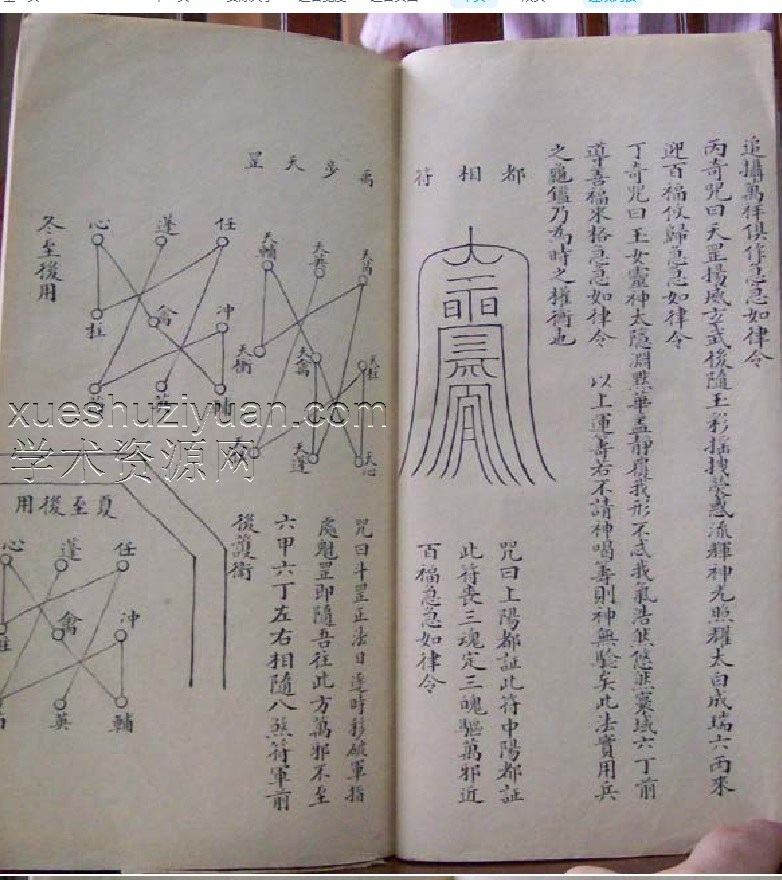 追攝萬祥俱作急急如律令
丙奇咒曰天罡揚威玄武後隨玉彩搖拽熒惑流輝神光照耀太白成瑞六丙來
迎百福仗歸急急如律令
丁奇咒曰玉女靈神太陰淵默華蓋靜覆我形不忒我氣浩然悠然裏域六丁前
導喜福來格急急如律令 以上運籌若不請神喝壽則神無驗矣此法實用兵
之龜鑑乃為時之權衡也
都相符
咒曰上陽都証此符中陽都証
此符喪三魂定三魄驅萬邪近
百福急急如律令
禹步天罡
天輔
天英
天禽
天衝
天柱
天蓬
天心
咒曰斗罡正法日逐時移破軍指
處魁罡即隨吾往此方萬邪不至
六甲六丁左右相隨八煞符軍前
後護衛
任
蓬
心
冲
禽
柱
英
冬至後用
夏至後用
任
蓬
心
冲
禽
柱
輔
英
xueshuziyuan.com
学术资源网